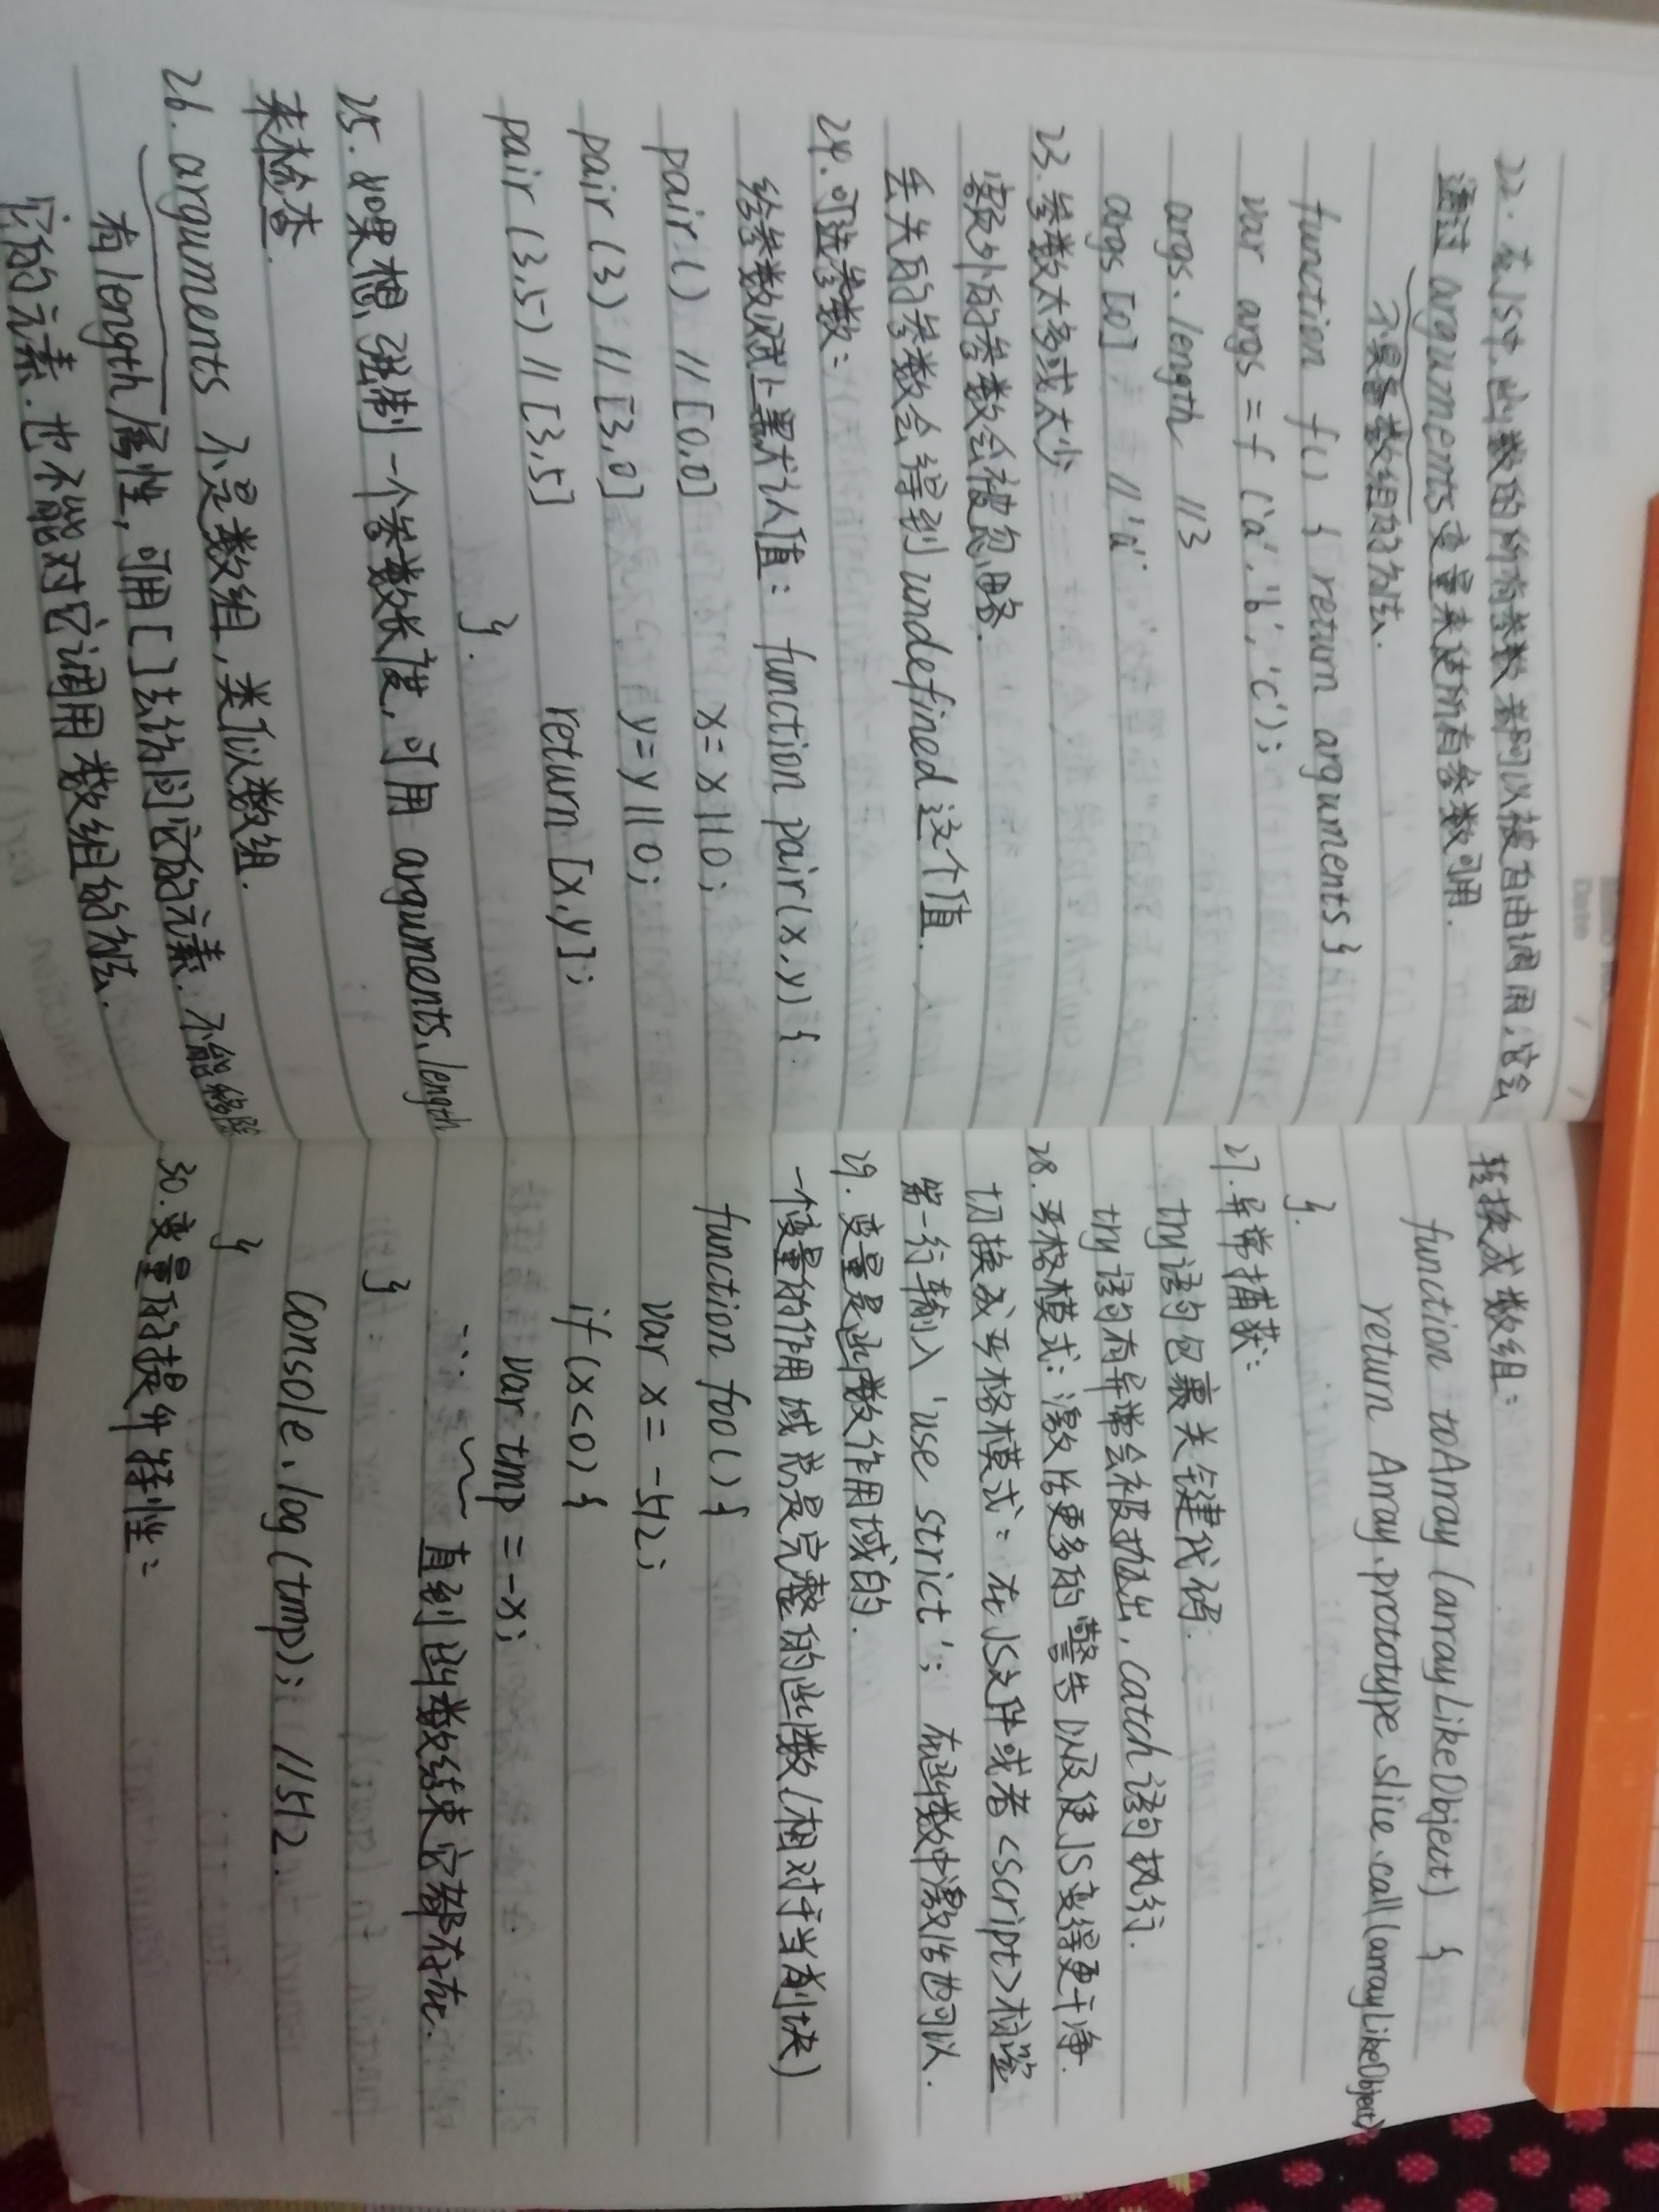 22. 在JS中, 函数的所有参数都可以被自由调用,它会
通过 arguments变量来使所有参数可用.
不具备数组的方法.
function f() { return arguments}
var args = f ('a', 'b', 'c');
args.length //3
args [0] // 'a'
23. 参数太多或太少
额外的参数会被忽略.
丢失的参数会得到 undefined 这个值.
24. 可选参数:
给参数赋上默认值: function pair(x,y) {
pair() // [0,0] x = x || 0;
pair (3) // [3,0] y = y || 0;
pair (3,5) // [3,5] return [x,y];
}.
25. 如果想强制一个参数长度, 可用 arguments.length
来检查.
26. arguments 不是数组,类似数组.
有length属性, 可用[]去访问它的元素. 不能移除
它的元素. 也不能对它调用数组的方法.
转换成数组:
function toArray (arrayLikeObject) {
return Array.prototype.slice.call(arrayLikeObject)
}.
27. 异常捕获:
try语句包裹关键代码.
try语句有异常会被抛出, catch语句执行.
28. 严格模式: 激发出更多的警告以及使JS变得更干净.
切换成严格模式: 在JS文件或者<script>标签
第一行输入 'use strict'; 在函数中激活也可以.
29. 变量是函数作用域的.
一个变量的作用域总是完整的函数(相对于当前块)
function foo() {
var x = -512;
if (x<0) {
var tmp = -x;
... 直到函数结束它都存在.
}
Console.log (tmp); //512.
}
30. 变量的提升特性: